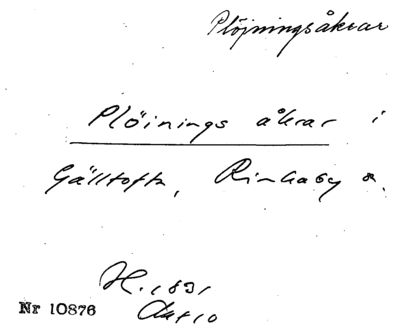 Plöjningsåkrar
Plöinings åkrar i
Gälltofta, Rinkaby s.
H. 1831
Nr 10876